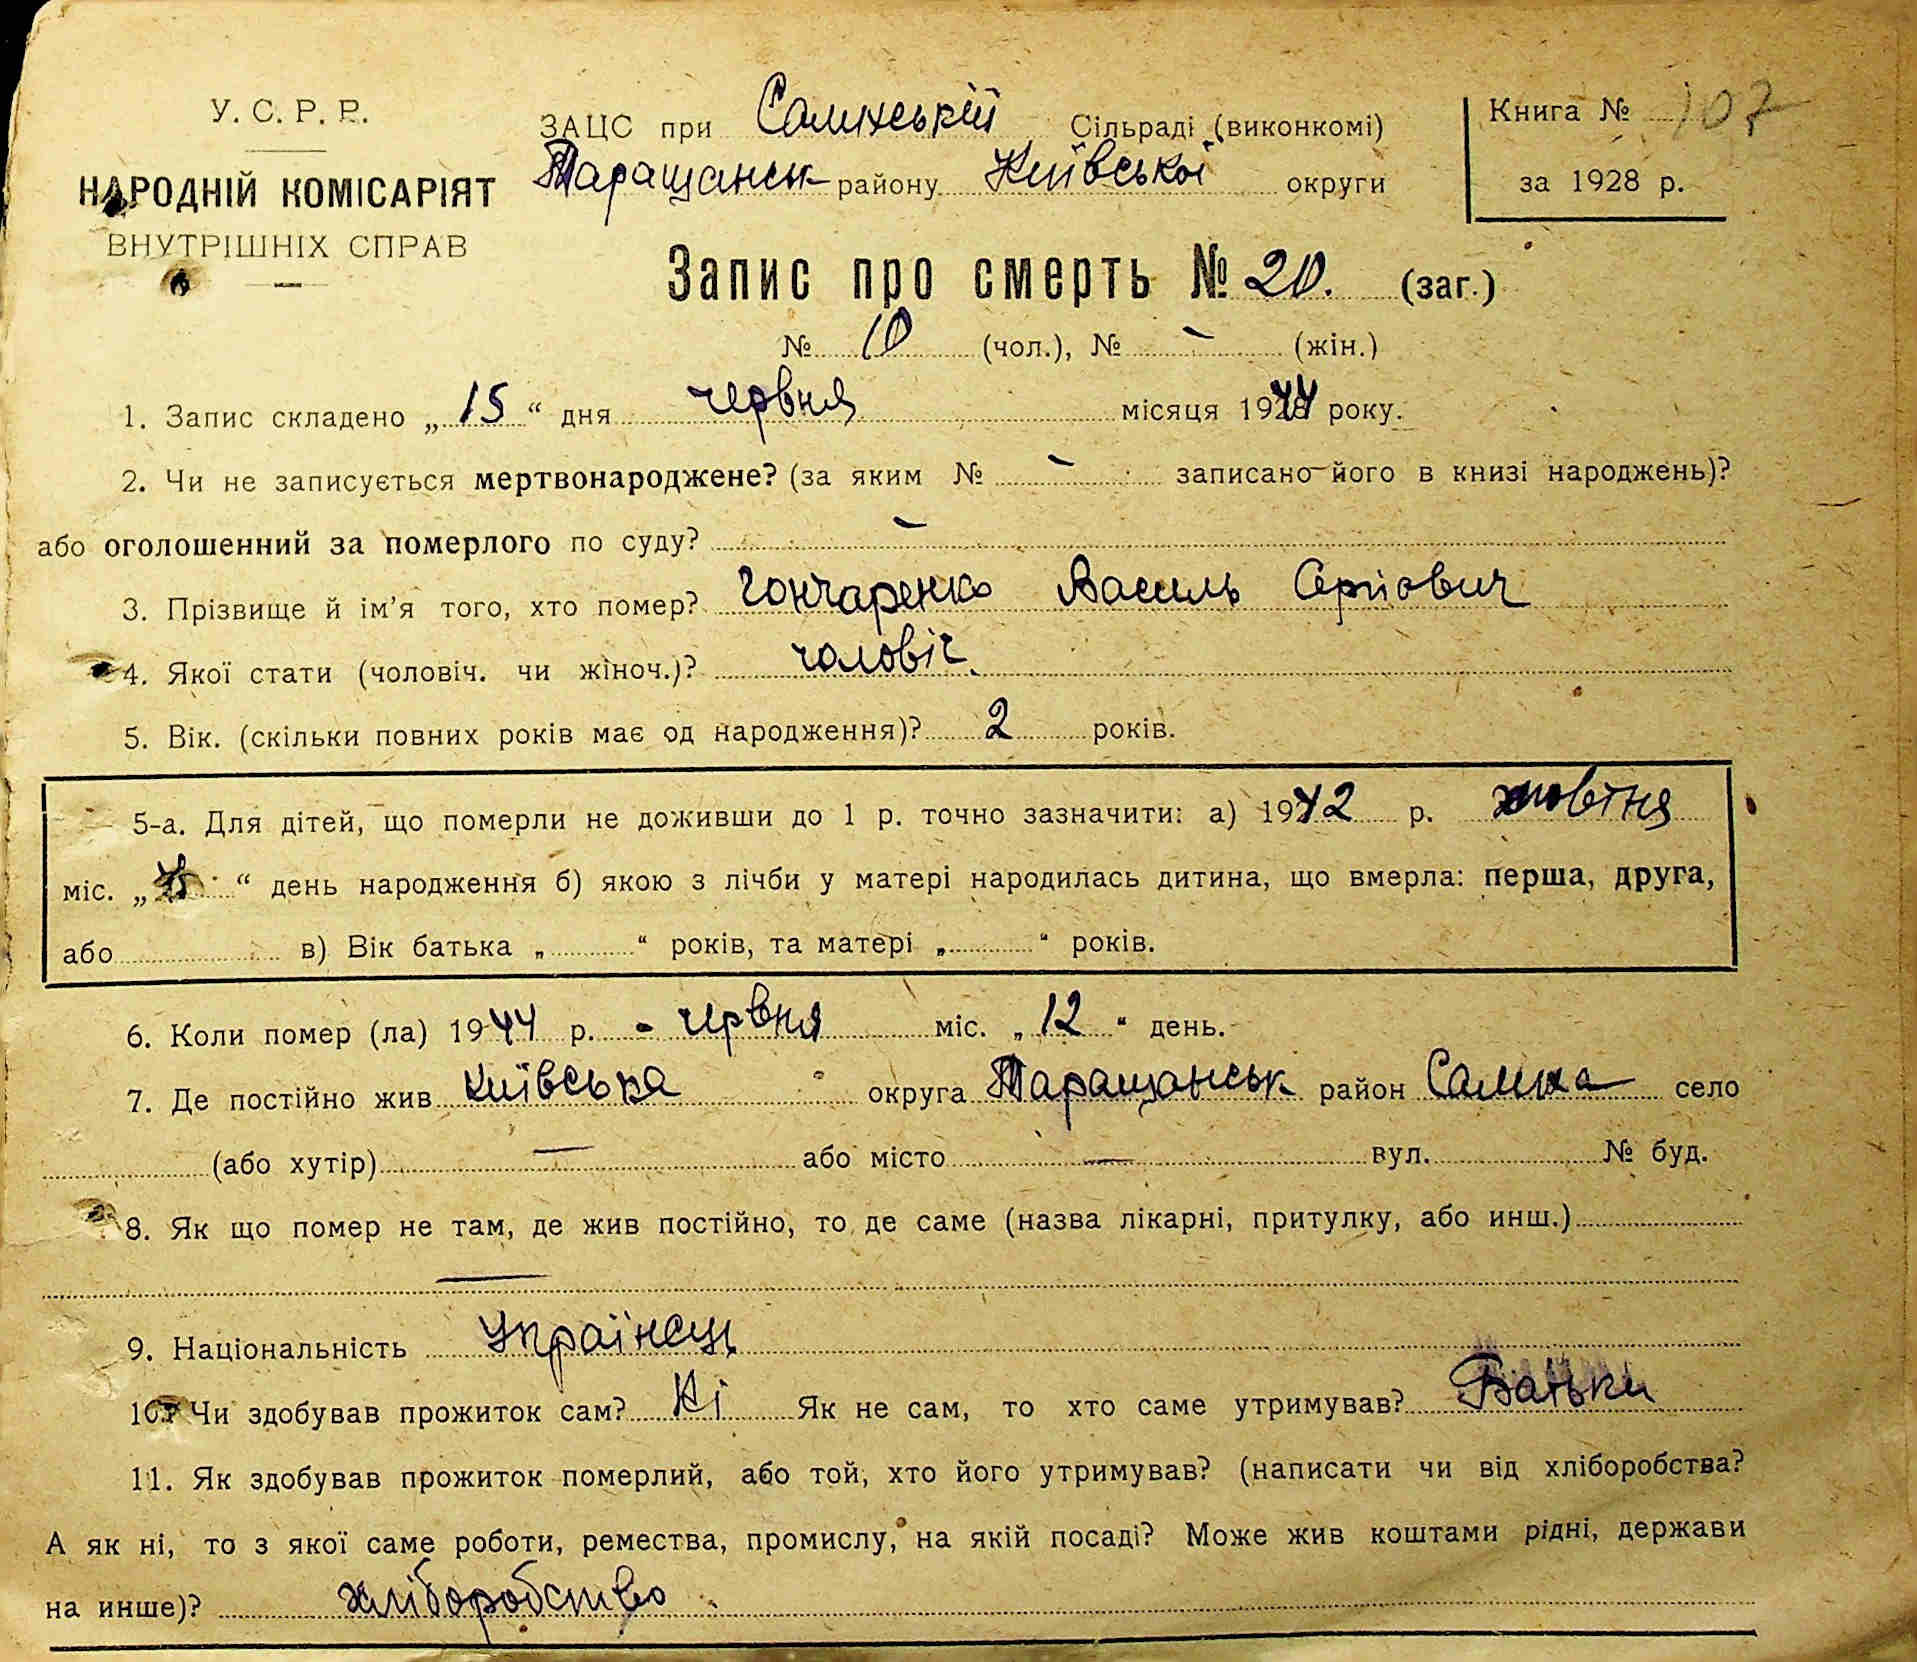 У. С. Р. Р.
НАРОДНІЙ КОМІСАРІЯТ
ВНУТРІШНІХ СПРАВ
ЗАЦС при Салиській Сільраді (виконкомі)
Таращанськ району Київської округи
Книга № 107
за 1928 р.
Запис про смерть № 20. (заг.)
№ 10 (чол.), № - (жін.)
1. Запис складено „ 15 “ дня червня місяця 1944 року.
2. Чи не записується мертвонароджене? (за яким № - записано його в книзі народжень)?
або оголошенний за померлого по суду? -
3. Прізвище й ім'я того, хто помер? Гончаренко Василь
4. Якої стати (чоловіч. чи жіноч.)? чоловіч.
5. Вік. (скільки повних років має од народження)? 2 років.
5-а. Для дітей, що померли не доживши до 1 р. точно зазначити: а) 1942 р. жовтня
міс. „ “ день народження б) якою з лічби у матері народилась дитина, що вмерла: перша, друга,
або в) Вік батька „ “ років, та матері „ “ років.
6. Коли помер (ла) 1944 р. - червня міс. „ 12 “ день.
7. Де постійно жив Київська округа Таращанськ район село
(або хутір) — або місто — вул. № буд.
8. Як що помер не там, де жив постійно, то де саме (назва лікарні, притулку, або инш.)
—
9. Національність Українец
10. Чи здобував прожиток сам? Ні Як не сам, то хто саме утримував? Батьки
11. Як здобував прожиток померлий, або той, хто його утримував? (написати чи від хліборобства?
А як ні, то з якої саме роботи, ремества, промислу, на якій посаді? Може жив коштами рідні, держави
на инше)? хліборобство